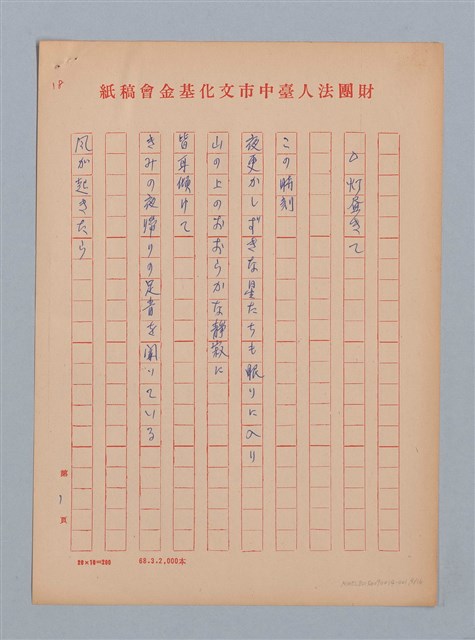 財團法人臺中市文化基金會稿紙
18
灯尽きて
この時刻
夜更かしずきな星たちも眠りに入り
山の上のおおらかな静寂に
皆耳傾けて
きみの夜帰りの足音を聞いている
風が起きたら
第 1 頁
20×10=200
68.3.2,000本